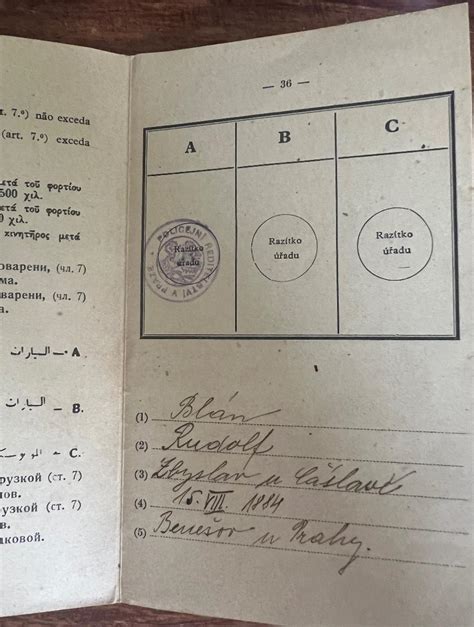 t. 7.º) não exceda
(art. 7.º) exceda
μετά τοῦ φορτίου
500 χιλ.
μετά τοῦ φορτίου
0 χιλ.
κινητῆρος μετά
оварени, (чл. 7)
ма.
варени, (чл. 7)
а.
A — السيارات
B. – السيارات
C.
рузкой (ст. 7)
нов.
рузкой (ст. 7)
в.
аковой.
— 36 —
A B C
POLICEJNÍ ŘEDITELSTVÍ V PRAZE
Razítko úřadu
Razítko úřadu
Razítko úřadu
(1) Blán
(2) Rudolf
(3) Zbyslav u Čáslavi
(4) 15. VIII. 1884
(5) Benešov u Prahy.